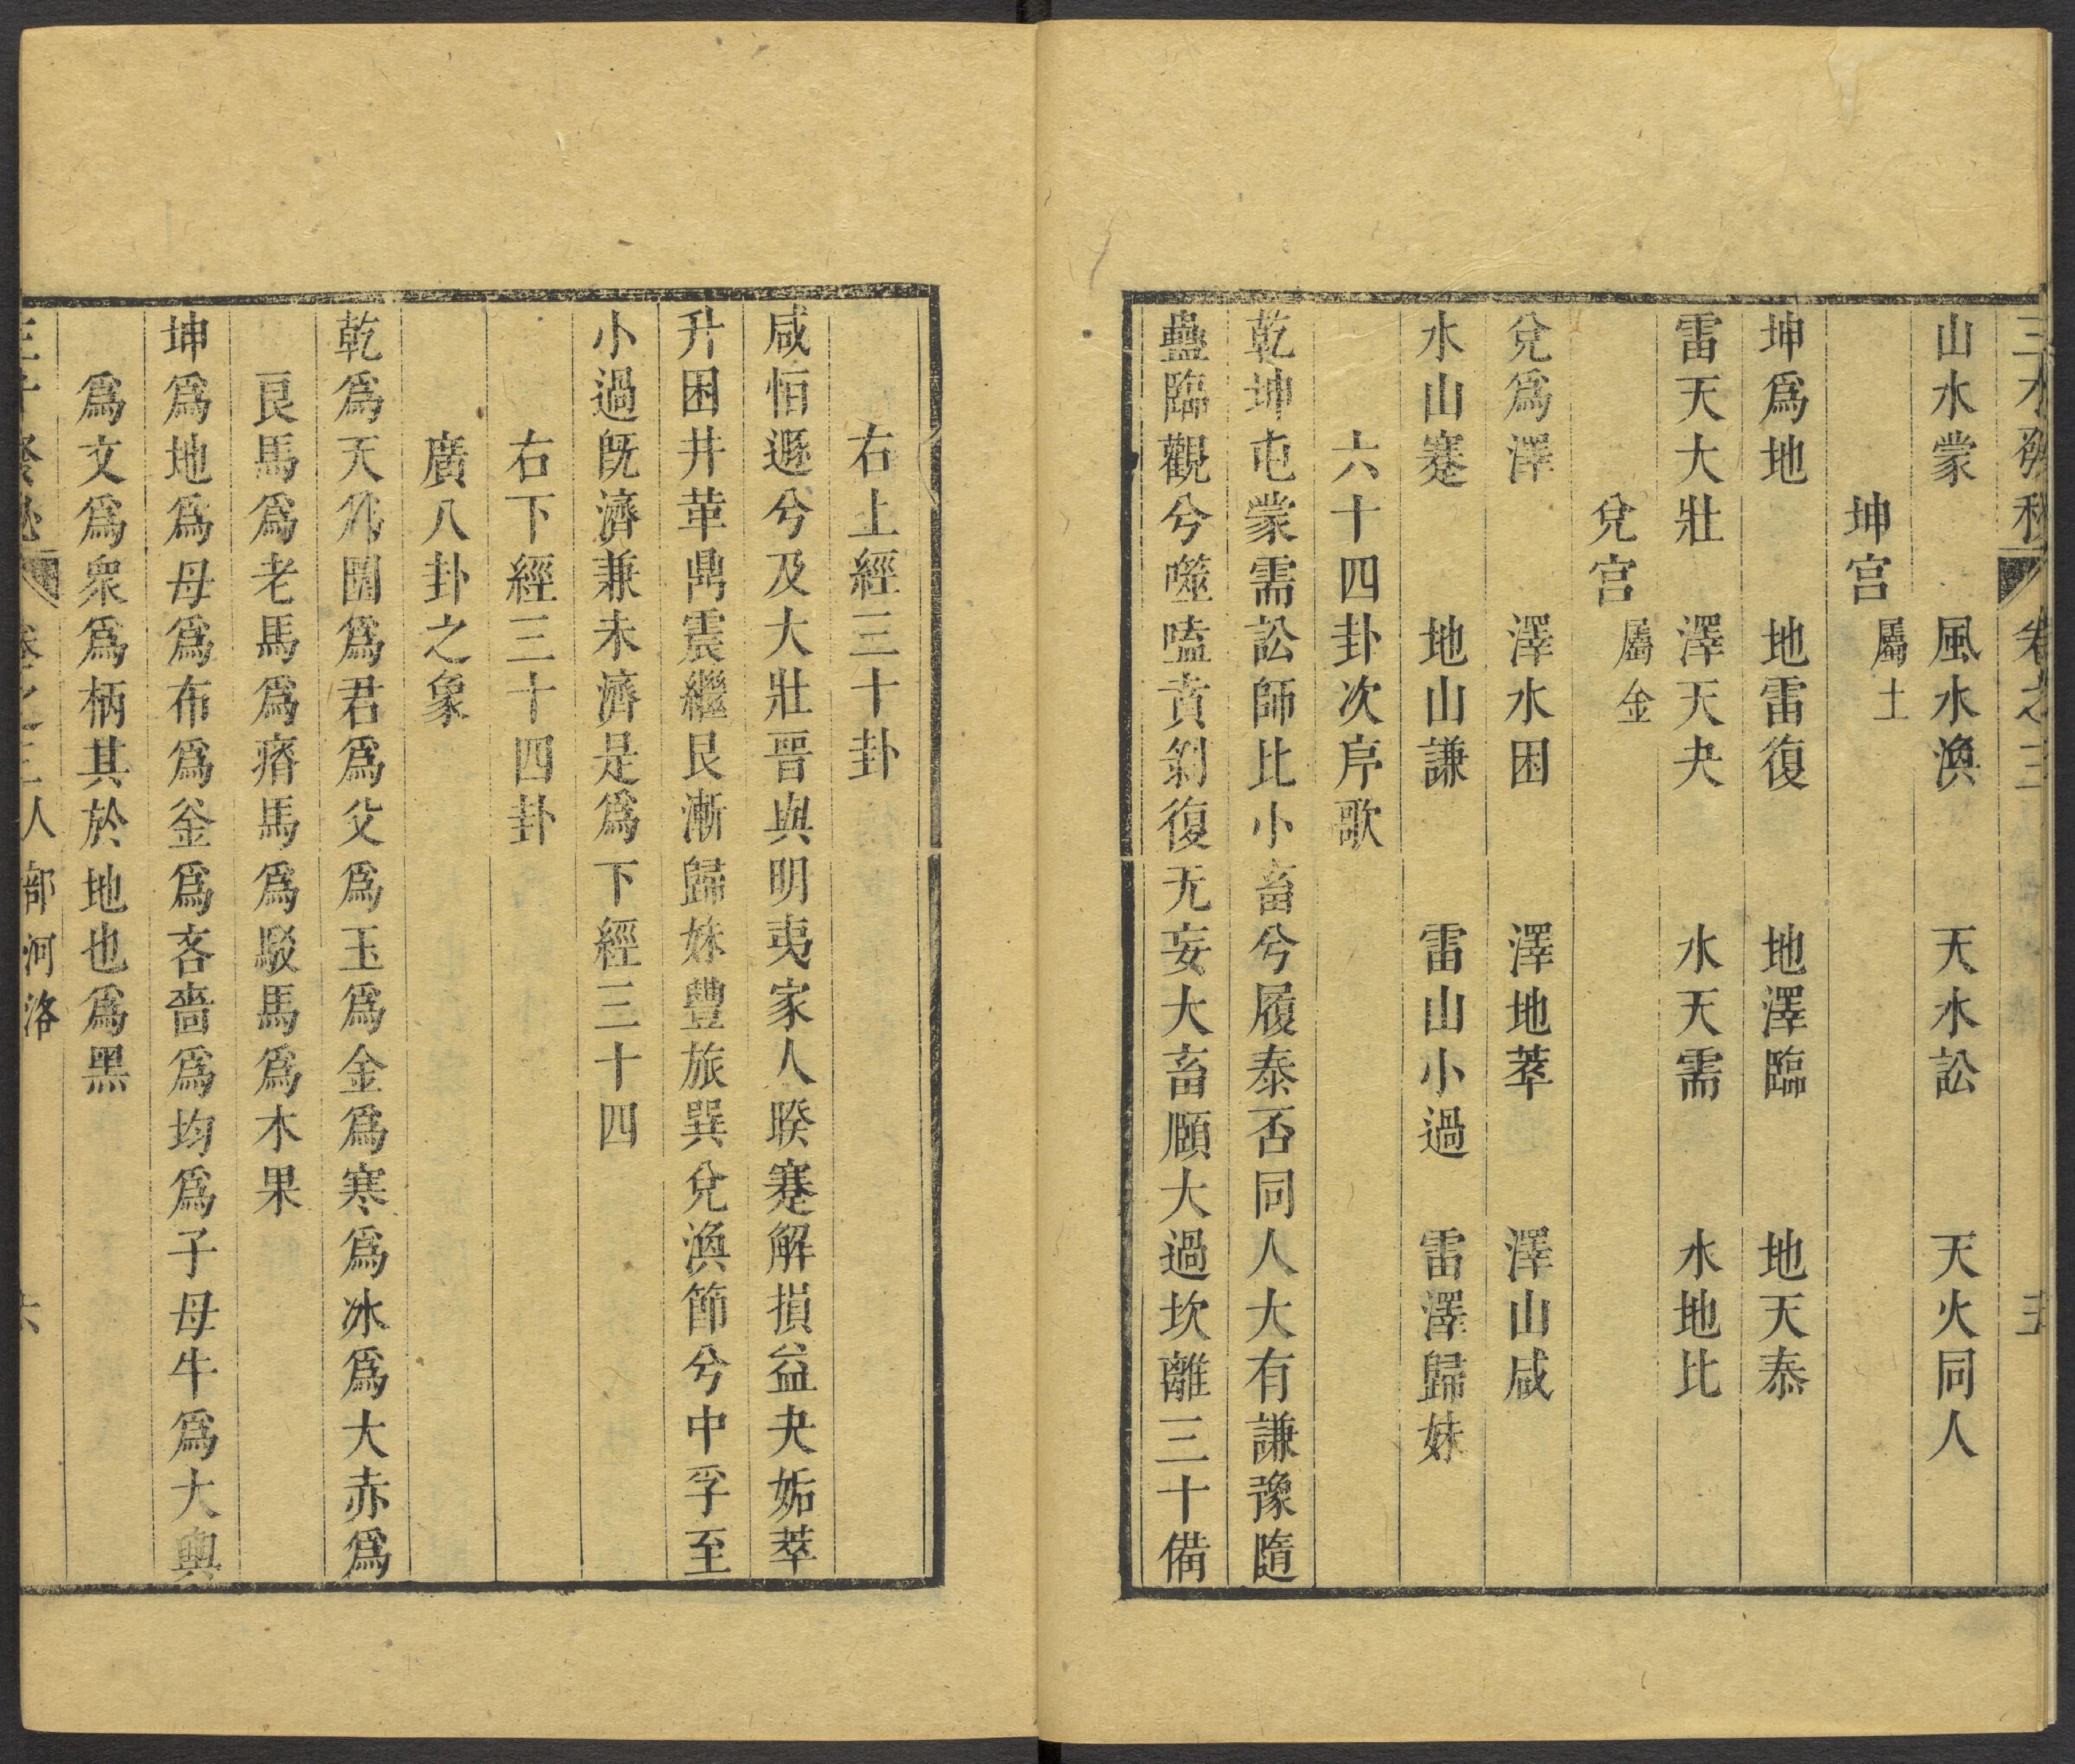 三才發秘 卷之三 五
山水蒙 風水渙 天水訟 天火同人
坤宮屬土
坤爲地 地雷復 地澤臨 地天泰
雷天大壯 澤天夬 水天需 水地比
兌宮屬金
兌爲澤 澤水困 澤地萃 澤山咸
水山蹇 地山謙 雷山小過 雷澤歸妹
六十四卦次序歌
乾坤屯蒙需訟師比小畜兮履泰否同人大有謙豫隨
蠱臨觀兮噬嗑賁剝復无妄大畜頤大過坎離三十備
右上經三十卦
咸恒遯兮及大壯晉與明夷家人暌蹇解損益夬姤萃
升困井革鼎震繼艮漸歸妹豐旅巽兌渙節兮中孚至
小過旣濟兼未濟是爲下經三十四
右下經三十四卦
廣八卦之象
乾爲天爲圜爲君爲父爲玉爲金爲寒爲冰爲大赤爲
良馬爲老馬爲瘠馬爲駁馬爲木果
坤爲地爲母爲布爲釜爲吝嗇爲均爲子母牛爲大輿
爲文爲衆爲柄其於地也爲黑
三才發秘 卷之三人部 河洛 六